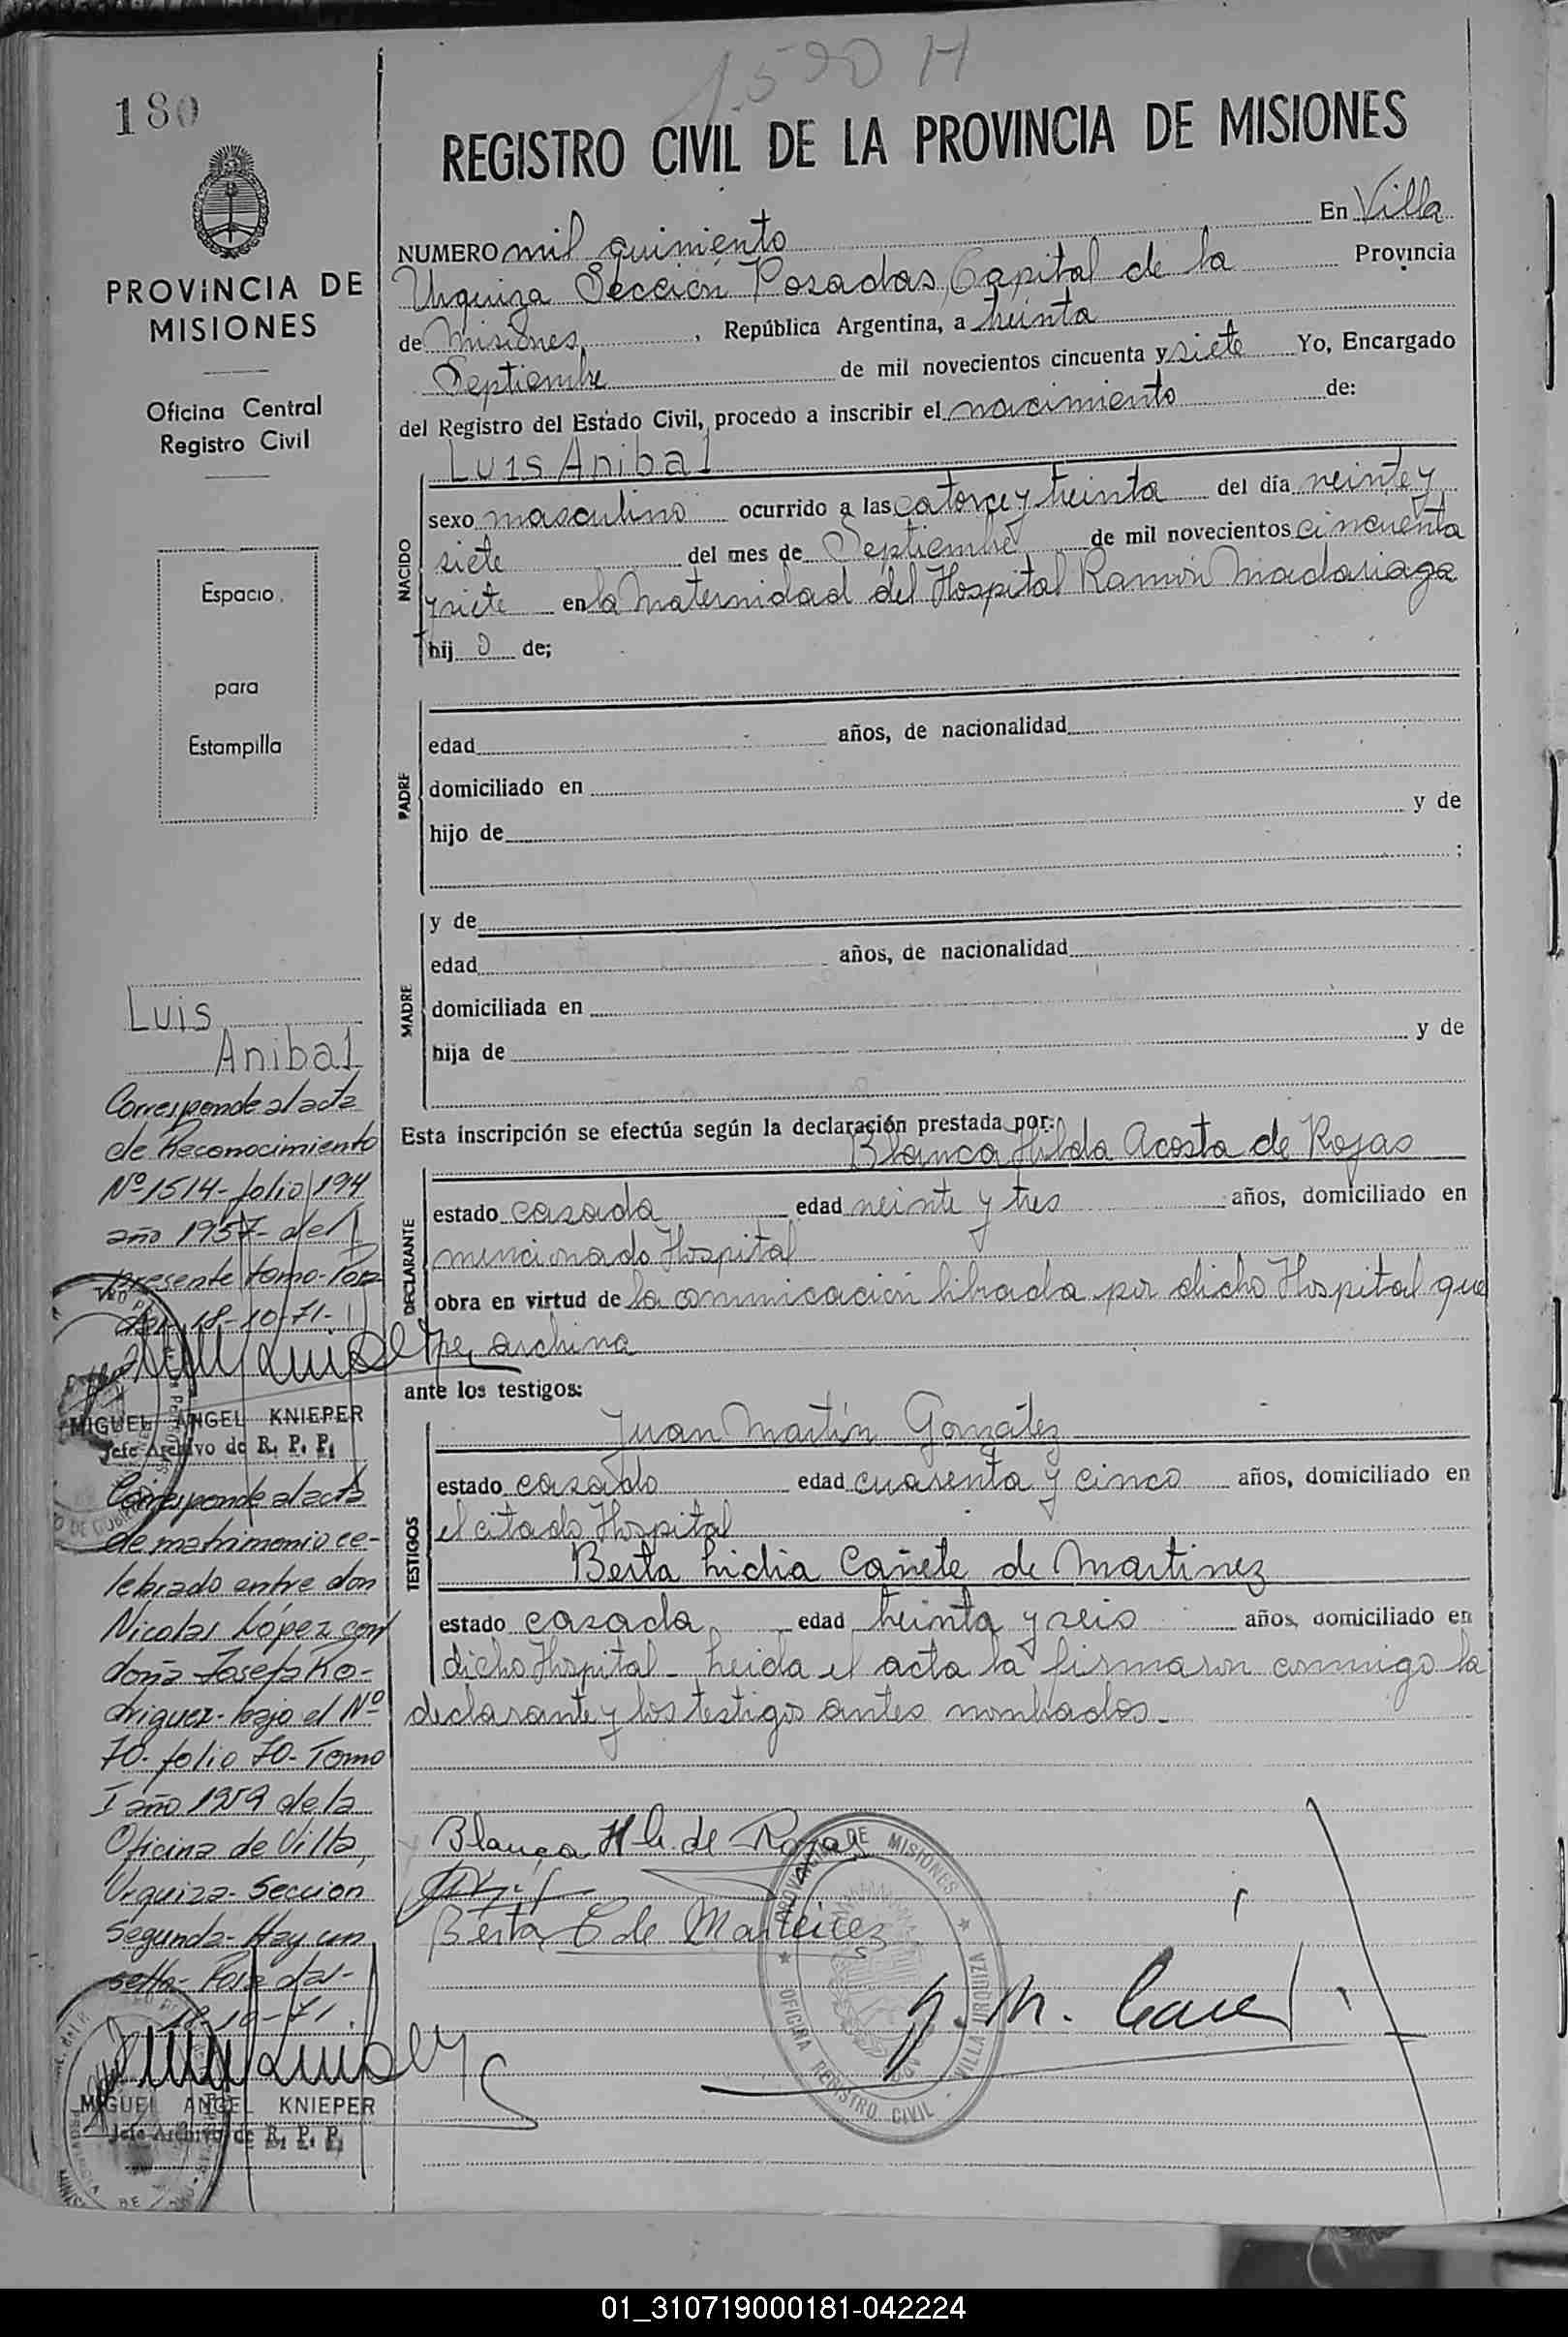 1.590 H
180
REGISTRO CIVIL DE LA PROVINCIA DE MISIONES
PROVINCIA DE
MISIONES
Oficina Central
Registro Civil
Espacio
para
Estampilla
NUMERO mil quiniento En Villa
Urquiza Sección Posadas, Capital de la Provincia
de Misiones, República Argentina, a treinta
Septiembre de mil novecientos cincuenta y siete Yo, Encargado
del Registro del Estado Civil, procedo a inscribir el nacimiento de:
NACIDO
Luis Anibal
sexo masculino ocurrido a las catorce y treinta del día veinte y
siete del mes de Septiembre de mil novecientos cincuenta
y siete en la Maternidad del Hospital Ramón Madariaga
hijo de;
PADRE
edad años, de nacionalidad
domiciliado en
hijo de y de
;
MADRE
y de
edad años, de nacionalidad
domiciliada en
hija de y de
Esta inscripción se efectúa según la declaración prestada por:
DECLARANTE
Blanca Hilda Acosta de Rojas
estado casada edad veinte y tres años, domiciliado en
mencionado Hospital
obra en virtud de la comunicación librada por dicho Hospital que
se archiva
ante los testigos:
TESTIGOS
Juan Martín González
estado casado edad cuarenta y cinco años, domiciliado en
el citado Hospital
Berta Lidia Cañete de Martinez
estado casada edad treinta y seis años, domiciliado en
dicho Hospital - Leida el acta la firmaron conmigo la
declarante y los testigos antes nombrados.-
Blanca H A. de Rojas
Berta C de Martinez
PROVINCIA DE MISIONES
OFICINA REGISTRO CIVIL - VILLA URQUIZA
Luis
Anibal
Corresponde al acta
de Reconocimiento
Nº 1514- folio 194
año 1957- del
presente tomo- Posa
das 18-10-71-
MIGUEL ANGEL KNIEPER
Jefe Archivo de R. P. P.
Corresponde al acta
de matrimonio ce-
lebrado entre don
Nicolas López con
doña Josefa Ro-
driguez- bajo el Nº
70- folio 70- Tomo
I año 1959 de la
Oficina de Villa
Urquiza- Seccion
segunda- Hay un
sello- Posadas-
18-10-71.
MIGUEL ANGEL KNIEPER
Jefe Archivo de R. P. P.
01_310719000181-042224